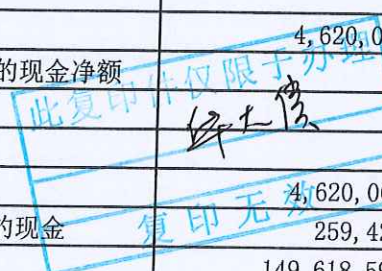 4,620,0
的现金净额
此复印件仅限于办理
4,620,00
的现金
259,42
复印无效
149,618,59